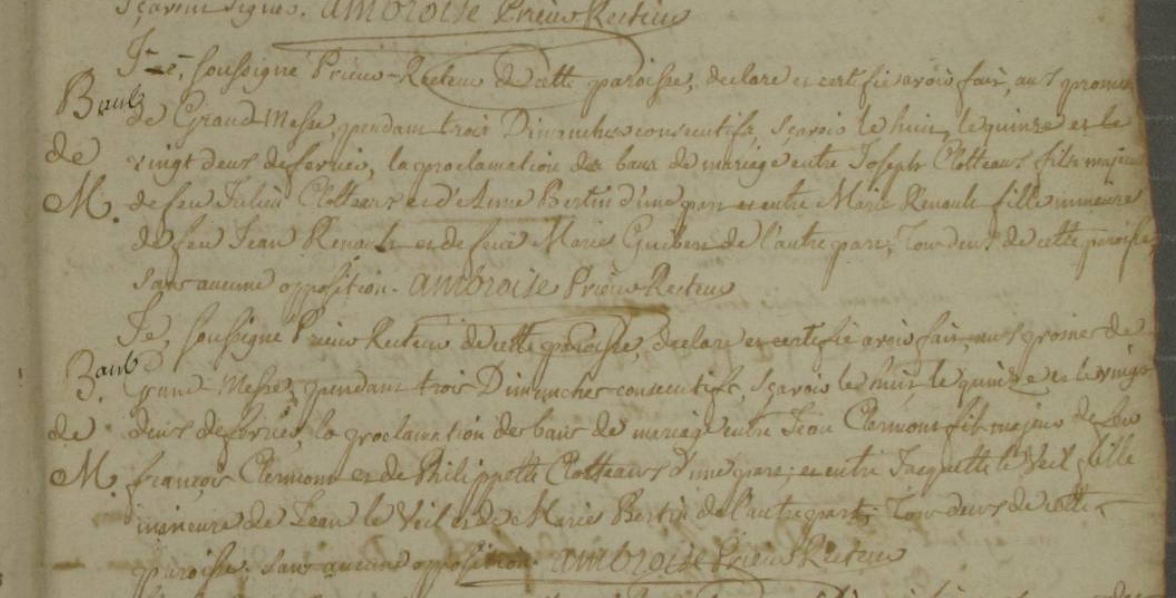 sçavent signer. ambroise Prieur Recteur
Je, soussigné Prieur-Recteur de cette paroisse, declare et certifie avoir fait, aus prones
Bans de Grand Messe, pendant trois Dimanches consecutifs, sçavoir le huit, le quinze et le
de vingt deus de fevrier, la proclamation des bans de mariage entre Joseph Clotteaus fils majeur
M. de feu Julien Clotteaus et d'Anne Bertin d'une part et entre Marie Renault fille mineure
de feu Jean Renault et de feüe Marie Guibert de l'autre part; Tous deus de cette paroisse,
sans aucune opposition. ambroise Prieur Recteur
Je, soussigné Prieur Recteur de cette paroisse, declare et certifie avoir fait, aus prones de
Bans grand-Messe, pendant trois Dimanches consecutifs, sçavoir le huit, le quinze et le vingt
de deus de fevrier, la proclamation des bans de mariage entre Jean Clermont fils majeur de feu
M. françois Clermont et de Philippette Clotteaus d'une part; et entre Jacquette le Veil fille
mineure de Jean le Veil et de Marie Bertin de l'autre part; Tous deus de cette
paroisse. sans aucune opposition. ambroise Prieur Recteur